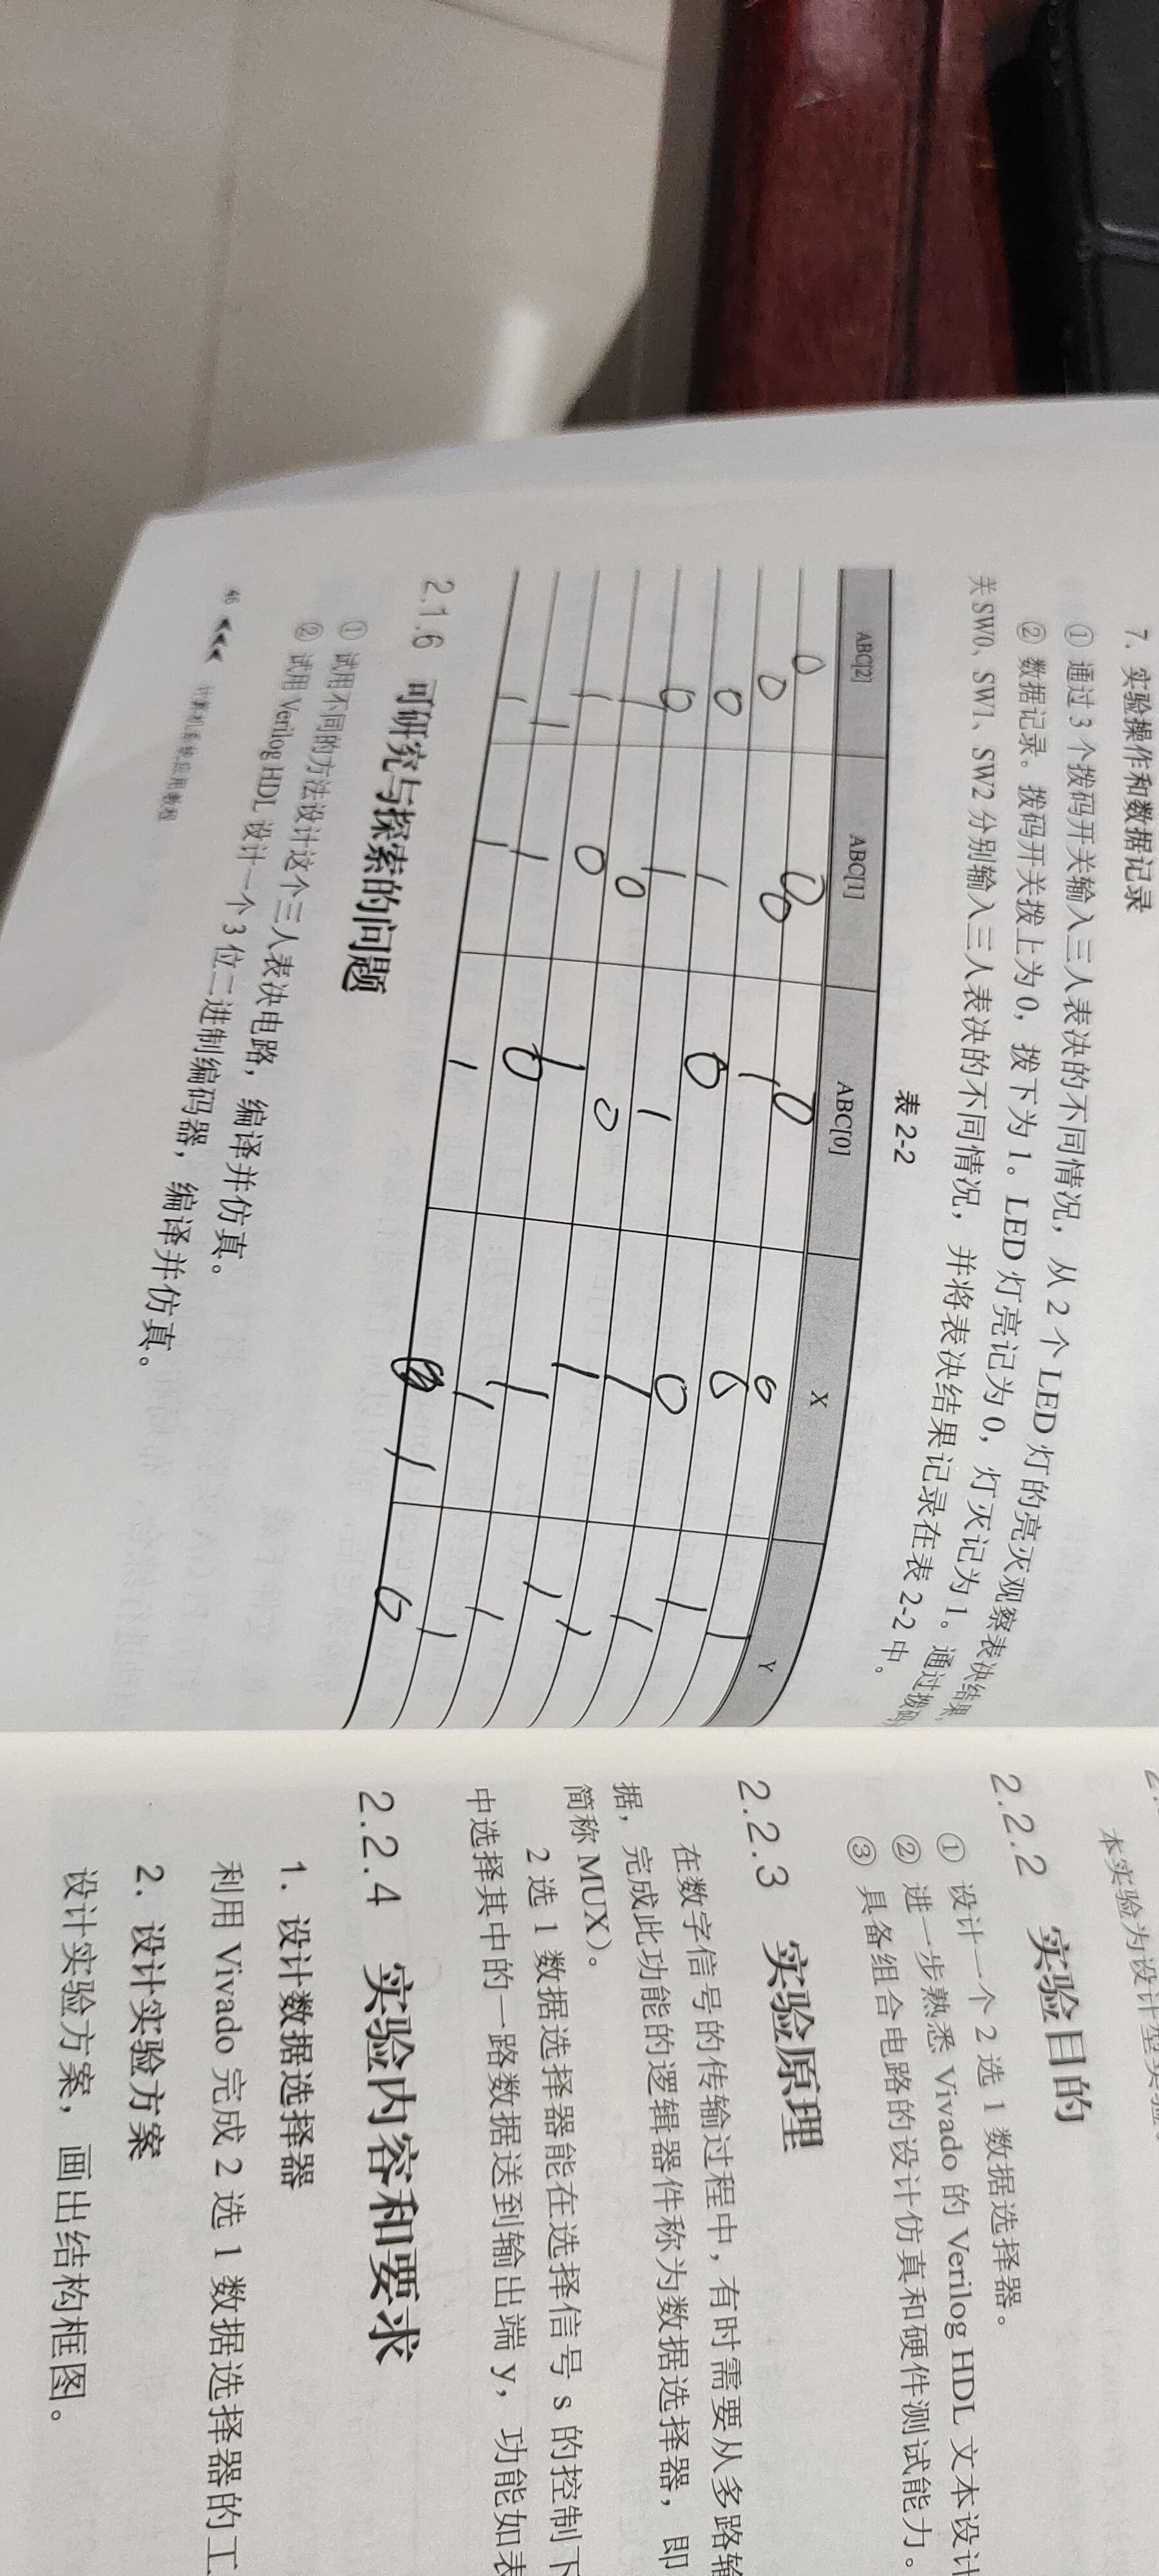 7. 实验操作和数据记录
① 通过 3 个拨码开关输入三人表决的不同情况，从 2 个 LED 灯的亮灭观察表决结果。
② 数据记录。拨码开关拨上为 0，拨下为 1。LED 灯亮记为 0，灯灭记为 1。通过拨码
关 SW0、SW1、SW2 分别输入三人表决的不同情况，并将表决结果记录在表 2-2 中。
表 2-2
ABC[2] ABC[1] ABC[0] X Y
0 0 0 0 1
0 0 1 0 1
0 1 0 0 1
0 1 1 1 1
1 0 0 1 1
1 0 1 1 1
1 1 0 1 1
1 1 1 1 0
2.1.6 可研究与探索的问题
① 试用不同的方法设计这个三人表决电路，编译并仿真。
② 试用 Verilog HDL 设计一个 3 位二进制编码器，编译并仿真。
46 计算机系统应用教程
本实验为设计型实验
2.2.2 实验目的
① 设计一个 2 选 1 数据选择器。
② 进一步熟悉 Vivado 的 Verilog HDL 文本设计
③ 具备组合电路的设计仿真和硬件测试能力。
2.2.3 实验原理
在数字信号的传输过程中，有时需要从多路输
据，完成此功能的逻辑器件称为数据选择器，即
简称 MUX）。
2 选 1 数据选择器能在选择信号 s 的控制下
中选择其中的一路数据送到输出端 y，功能如表
2.2.4 实验内容和要求
1. 设计数据选择器
利用 Vivado 完成 2 选 1 数据选择器的工
2. 设计实验方案
设计实验方案，画出结构框图。